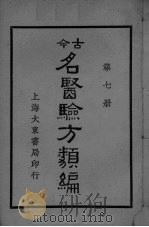 第七册
古今
名醫驗方類編
上海大東書局印行